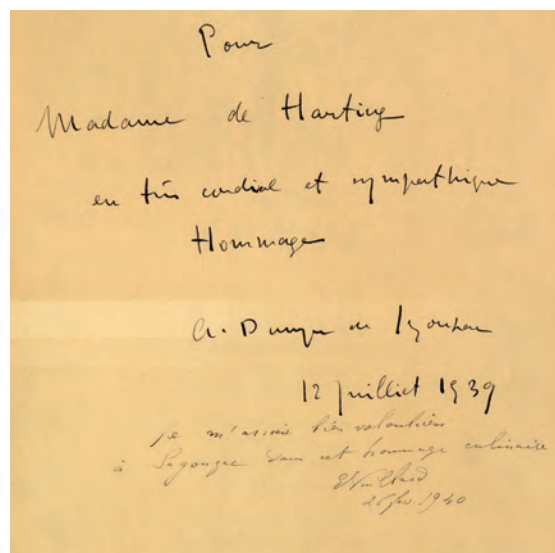 Pour
Madame de Harting
en très cordial et sympathique
Hommage
A. Dunoyer de Segonzac
12 juillet 1939
je m'associe bien volontiers
à Segonzac dans cet hommage culinaire
EVuillard
26 fev. 1940